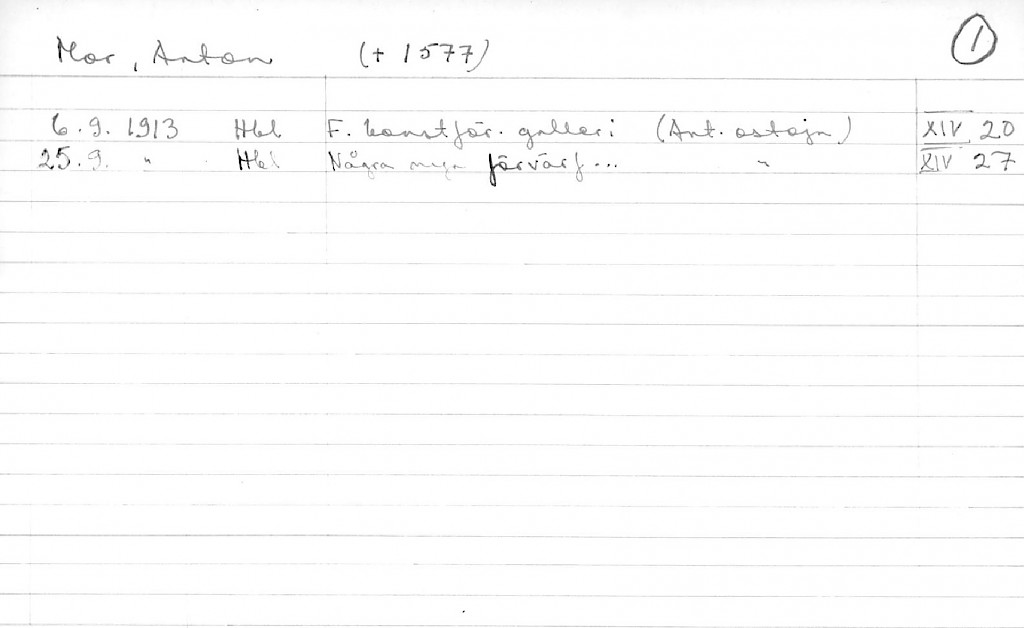 Mor, Anton (+ 1577) 1
6.9. 1913 Hbl F. konstför. galleri (Ant. ostoja) XIV 20
25.9. " Hbl Några nya förvärf... " XIV 27